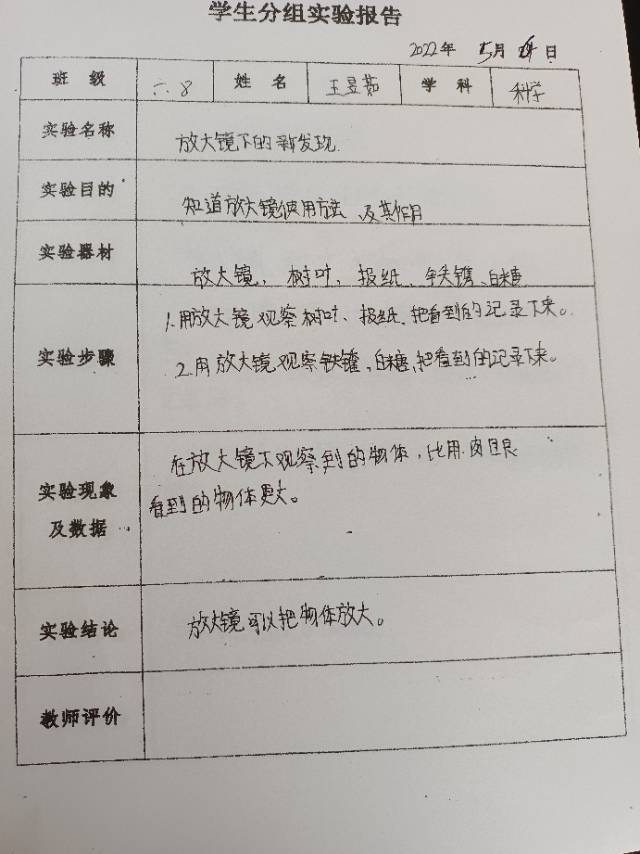 学生分组实验报告
2022年 5月 日
班 级 六.8 姓 名 王昱茹 学 科 科学
实验名称 放大镜下的新发现.
实验目的 知道放大镜使用方法 及其作用
实验器材 放大镜, 树叶, 报纸、 、白糖
实验步骤
1.用放大镜观察树叶、报纸、把看到的记录下来。
2.用放大镜观察铁 、白糖,把看到的记录下来。
实验现象
及数据
在放大镜下观察到的物体,比用肉眼
看到的物体更大。
实验结论 放大镜可以把物体放大。
教师评价